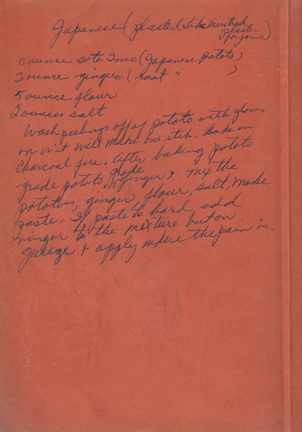 Japanese plaster (Like Mustard Plaster
For pains)
5 ounce soto Imo (Japanese Potato)
2 ounce ginger (Root " )
5 ounce flour
2 ounces salt
Wash peelings off of potato with gloves
on or it will make one itch. Bake on
Charcoal fire. After baking potato
grade potato, grade ginger, mix the
potatoes, ginger, flour, salt, make
paste. If paste to hard add
to the mixture
gauze & apply where the pain is.